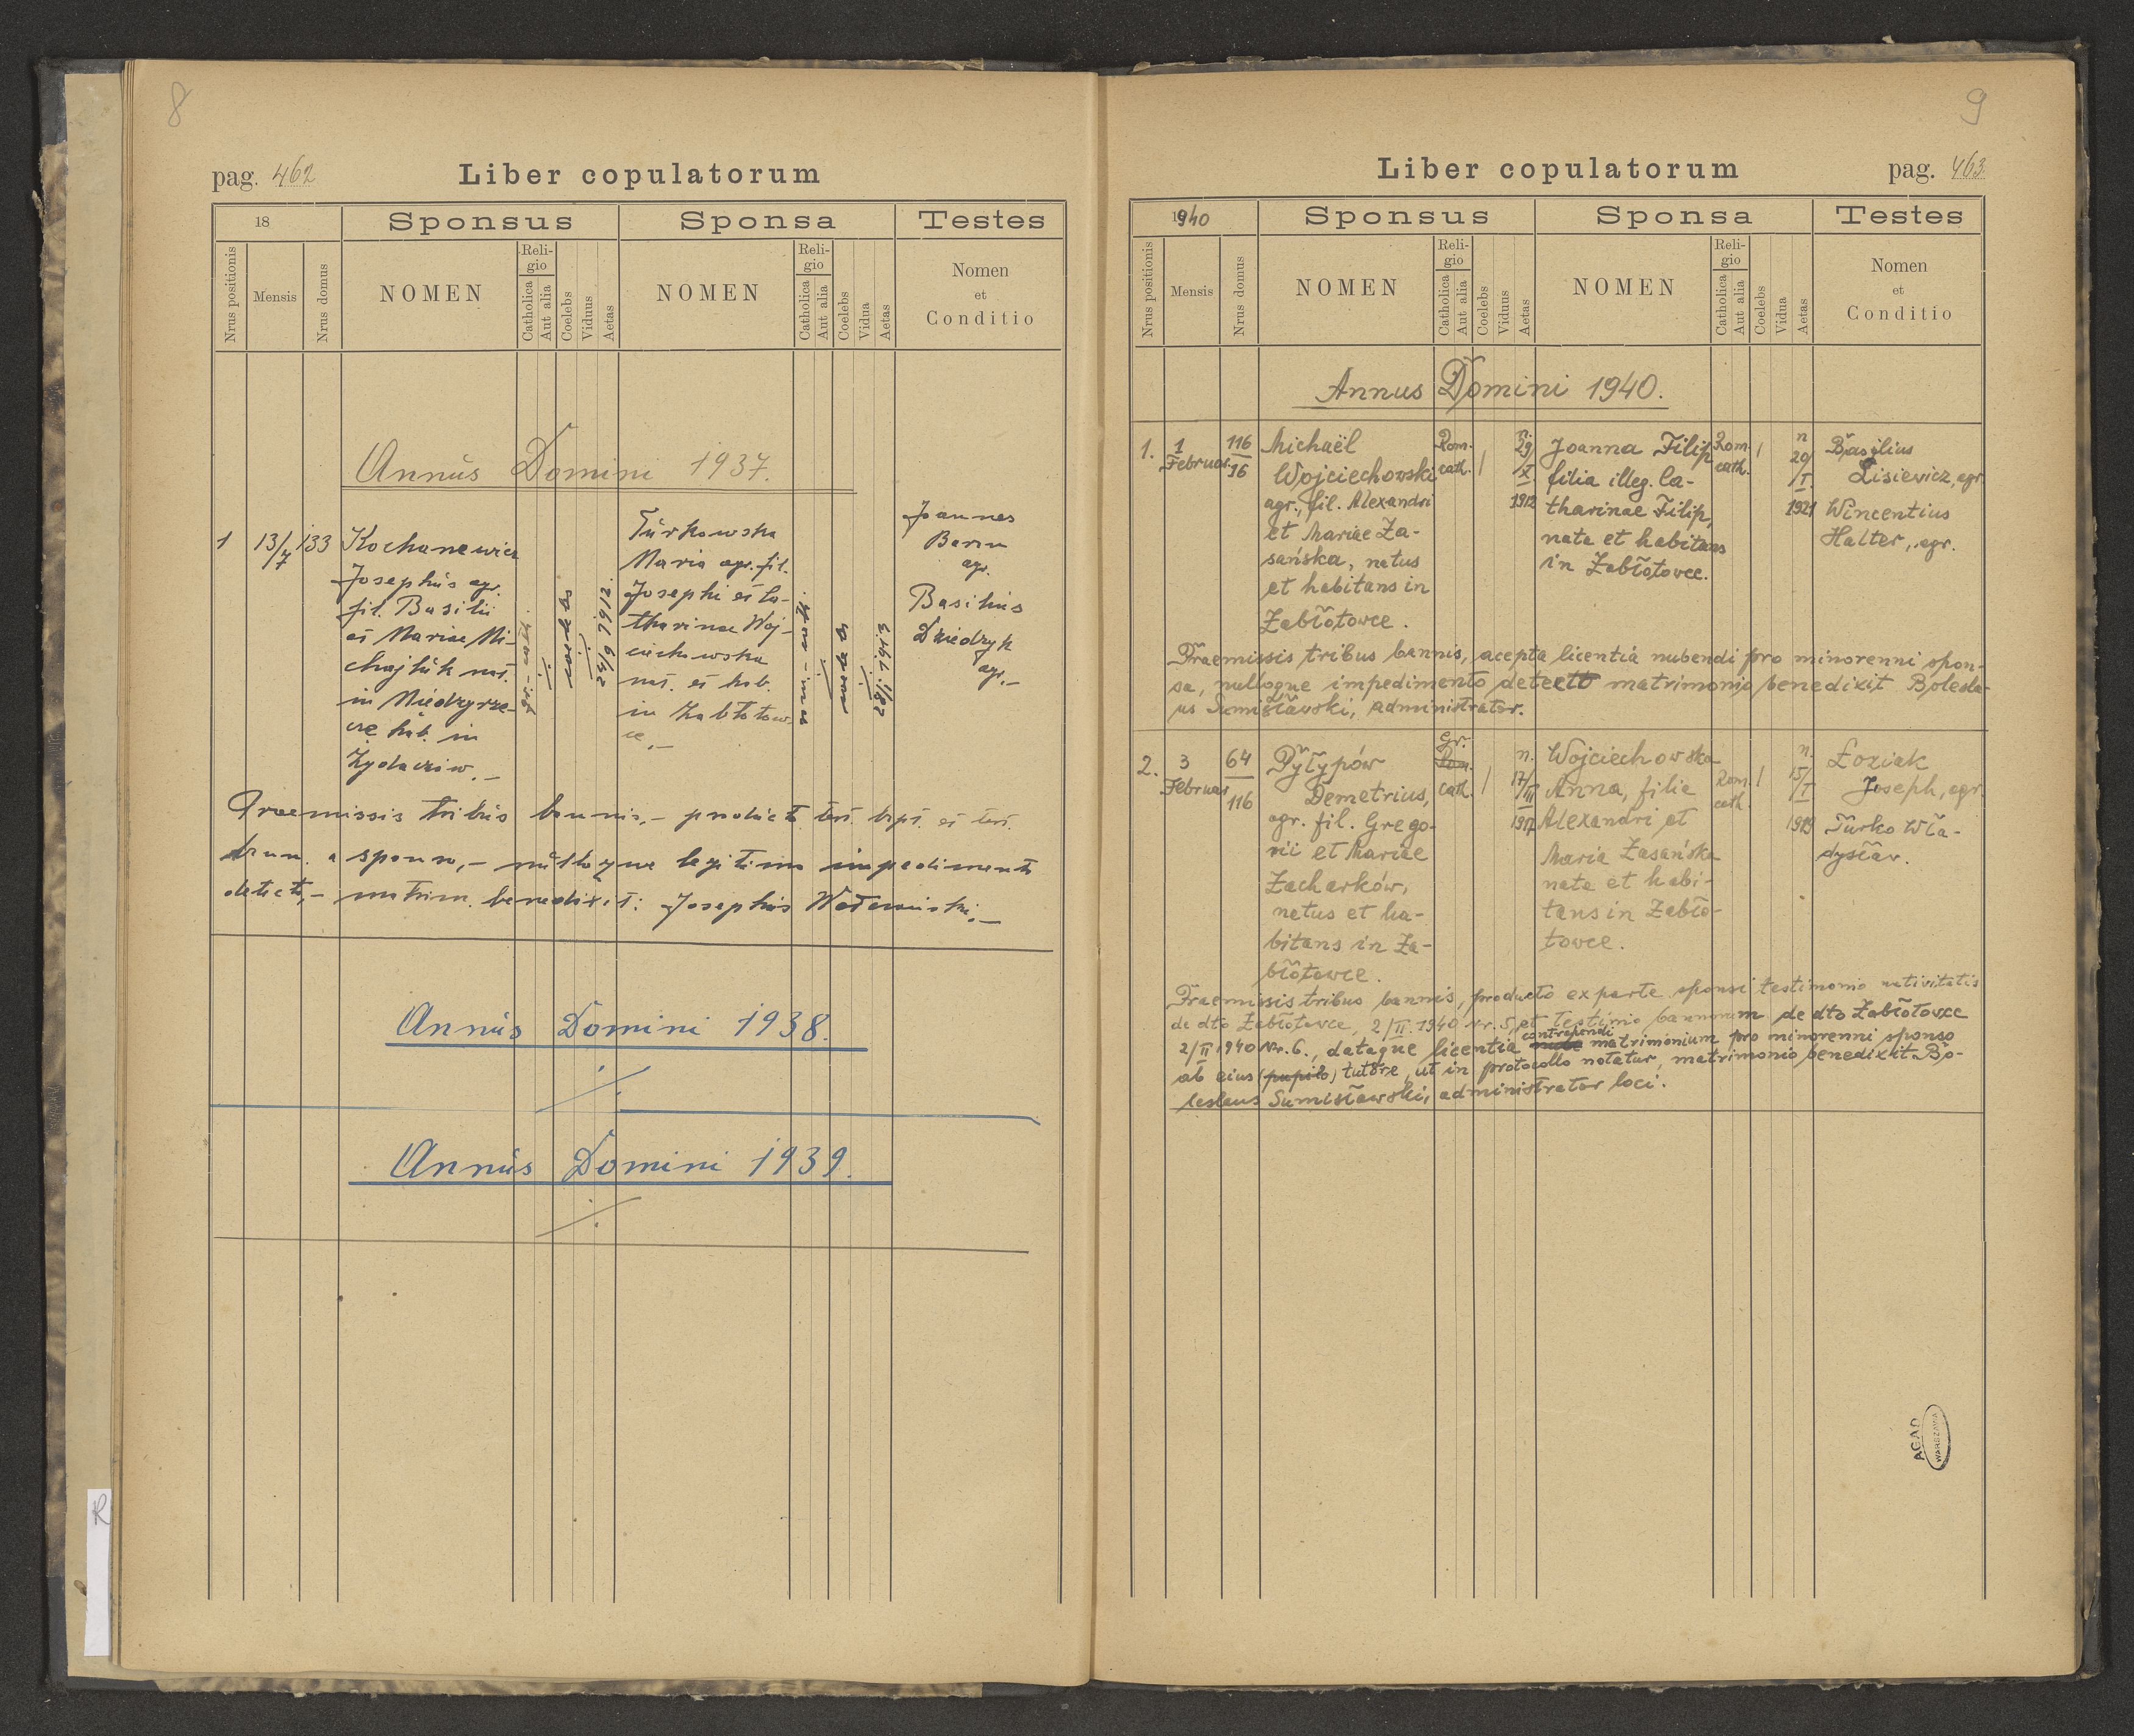 8
pag. 462
Liber copulatorum
18
Sponsus
Sponsa
Testes
Nrus positionis
Mensis
Nrus domus
NOMEN
Religio
Catholica
Aut alia
Coelebs
Viduus
Aetas
NOMEN
Religio
Catholica
Aut alia
Coelebs
Vidua
Aetas
Nomen
et
Conditio
Annus Domini 1937.
1
13/7
133
Kochanewicz
Josephus agr.
fil. Basilii
et Mariae Mi-
chajluk nat.
in Miedzyrze-
cze hab. in
Żydaczów.–
Turkowska
Maria agr. fil.
Josephi et Ca-
tharinae Woj-
ciechowska
nat. et hab.
in Zabłotow-
ce.–
Joannes
Baran
agr.
Basilius
Dziedzyk
agr.–
Praemissis tribus bannis,– product. test. bapt. et test.
bann. a sponso,– nulloque legitimo impedimento
detecto,– matrim. benedixit: Josephus
Annus Domini 1938.
Annus Domini 1939.
9
Liber copulatorum
pag. 463
1940
Sponsus
Sponsa
Testes
Nrus positionis
Mensis
Nrus domus
NOMEN
Religio
Catholica
Aut alia
Coelebs
Viduus
Aetas
NOMEN
Religio
Catholica
Aut alia
Coelebs
Vidua
Aetas
Nomen
et
Conditio
Annus Domini 1940.
1.
1
Februar.
116
16
Michaël
Wojciechowski
agr., fil. Alexandri
et Mariae Za-
sańska, natus
et habitans in
Zabłotowce.
Rom.
cath.
/
n.
29/
X
1912
Joanna Filip
filia illeg. Ca-
tharinae Filip,
nata et habitans
in Zabłotowce.
Rom.
cath.
/
n
20/
/I
1921
Basilius
Lisiewicz, agr.
Wincentius
Halter, agr.
Praemissis tribus bannis, acepta licentia nubendi pro minorenni spon-
sa, nulloque impedimento detecto matrimonio benedixit Bolesla-
us Sumisławski, administrator.
2.
3
Februar
64
116
Pyłypów
Demetrius,
agr. fil. Grego-
rii et Mariae
Zacharków,
natus et ha-
bitans in Za-
błotowce.
gr.
Rom.
cath.
/
n.
17/
III
1917
Wojciechowska
Anna, filia
Alexandri et
Maria Zasańska
nata et habi-
tans in Zabło-
towce.
Rom.
cath.
/
n.
15/
/I
1919
Łoziak
Joseph, agr.
Turko Wła-
dysław.
Praemissis tribus bannis, producto ex parte sponsi testimonio nativitatis
de dto Zabłotowce, 2/II.1940 Nr. 5, et Testimio bannorum de dto Zabłotowce
2/II 1940 Nr. 6., dataque licentia contrahendi matrimonium pro minorenni sponso
ab eius (pupilo) tutore, ut in protocollo notatur, matrimonio benedixit Bo-
leslaus Sumisławski, administrator loci.
AGAD
WARSZAWA
R